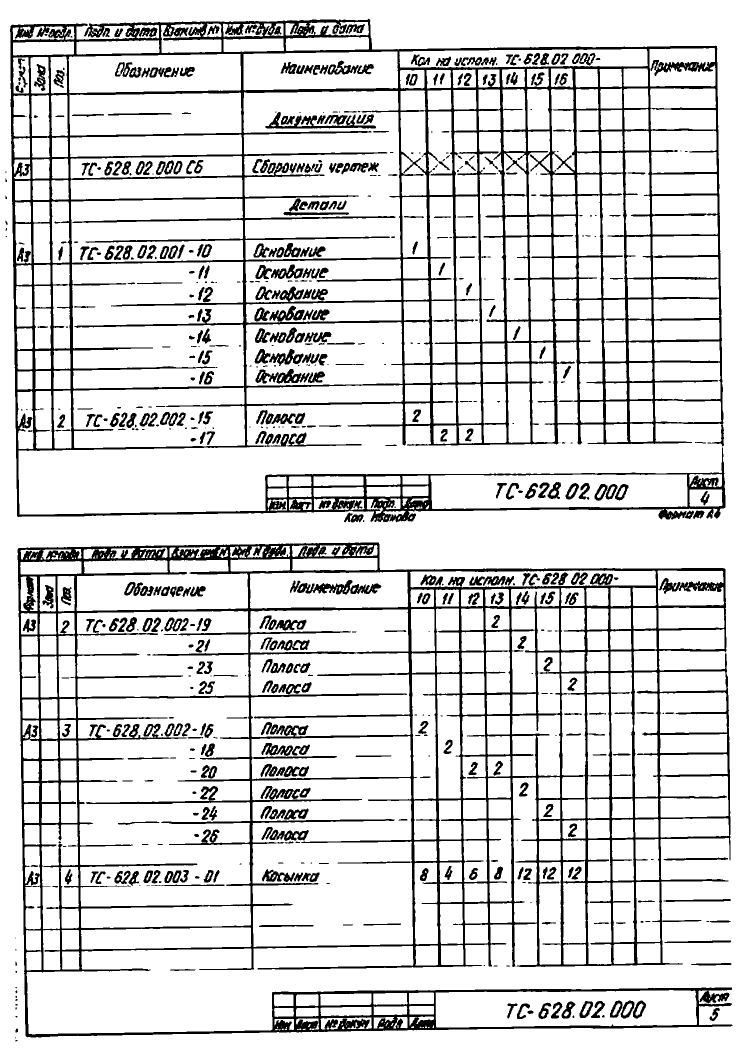 Инв. № подл. Подп. и дата Взам.инв № Инв. № дубл. Подп. и дата
Формат Зона Поз. Обозначение Наименование Кол на исполн. ТС-628.02 000- Примечание
10 11 12 13 14 15 16
Документация
А3 ТС-628.02.000 СБ Сборочный чертеж
Детали
А3 1 ТС-628.02.001 -10 Основание 1
-11 Основание 1
-12 Основание 1
-13 Основание 1
-14 Основание 1
-15 Основание 1
-16 Основание 1
А3 2 ТС-628.02.002 -15 Полоса 2
-17 Полоса 2 2
Изм. Лист № докум. Подп. Дата ТС-628.02.000 Лист 4
Коп. Иванова Формат А4
Инв. № подл Подп. и дата Взам.инв.№ Инв № дубл. Подп. и дата
Формат Зона Поз. Обозначение Наименование Кол. на исполн. ТС-628 02 000- Примечание
10 11 12 13 14 15 16
А3 2 ТС-628.02.002-19 Полоса 2
-21 Полоса 2
-23 Полоса 2
-25 Полоса 2
А3 3 ТС-628.02.002-16 Полоса 2
-18 Полоса 2
-20 Полоса 2 2
-22 Полоса 2
-24 Полоса 2
-26 Полоса 2
А3 4 ТС-628.02.003 - 01 Косынка 8 4 6 8 12 12 12
Изм Лист № докум Подп Дата ТС-628.02.000 Лист 5